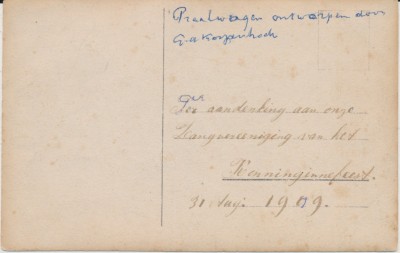 Praalwagen ontworpen door
G. v. d. Korpenhoek
Ter aandenking aan onze
Zangvereeniging van het
Konninginnefeest.
31 Aug. 1909.